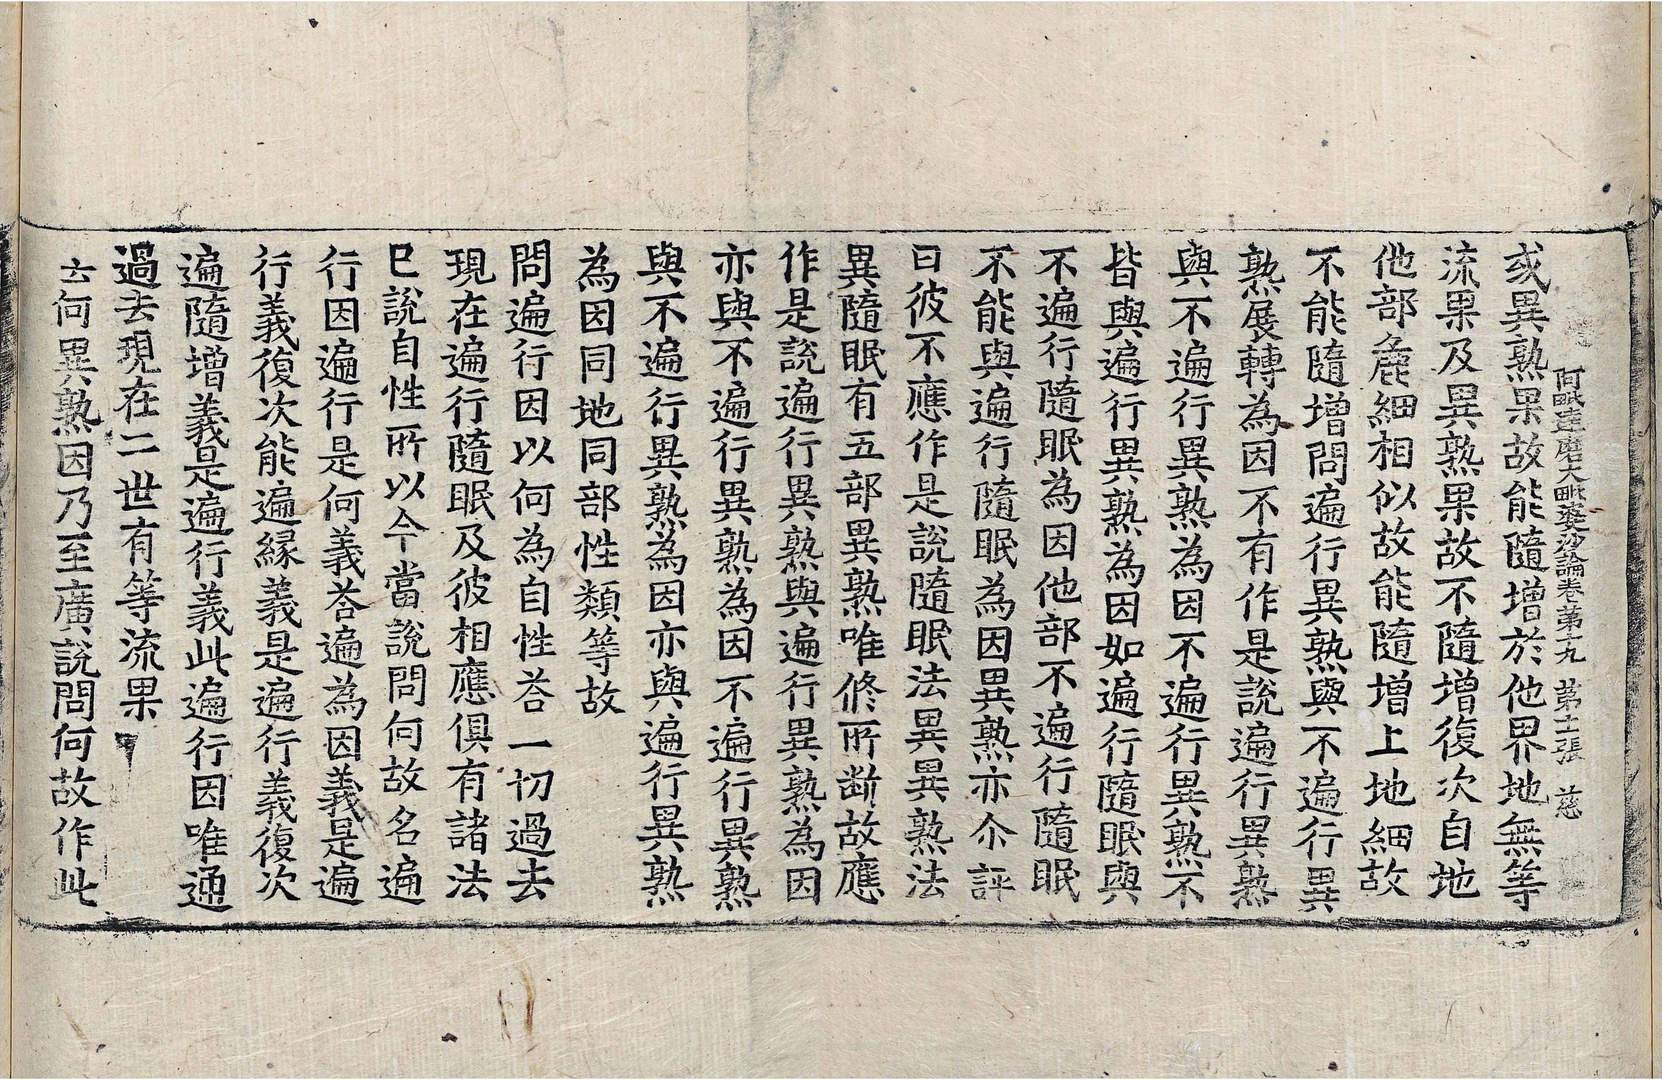 阿毗達磨大毗婆沙論卷第十九　第十二張　慈
或異熟果故能隨增於他界地無等
流果及異熟果故不隨增復次自地
他部麁細相似故能隨增上地細故
不能隨增問遍行異熟與不遍行異
熟展轉為因不有作是說遍行異熟
與不遍行異熟為因不遍行異熟不
皆與遍行異熟為因如遍行隨眠與
不遍行隨眠為因他部不遍行隨眠
不能與遍行隨眠為因異熟亦尒評
曰彼不應作是說隨眠法異異熟法
異隨眠有五部異熟唯修所斷故應
作是說遍行異熟與遍行異熟為因
亦與不遍行異熟為因不遍行異熟
與不遍行異熟為因亦與遍行異熟
為因同地同部性類等故
問遍行因以何為自性荅一切過去
現在遍行隨眠及彼相應俱有諸法
已說自性所以今當說問何故名遍
行因遍行是何義荅遍為因義是遍
行義復次能遍緣義是遍行義復次
遍隨增義是遍行義此遍行因唯通
過去現在二世有等流果
云何異熟因乃至廣說問何故作此